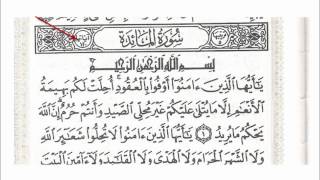 سُورَةُ المَائِدَةِ
بِسْمِ اللَّهِ الرَّحْمَٰنِ الرَّحِيمِ
يَٰٓأَيُّهَا الَّذِينَ ءَامَنُوٓا أَوْفُوا بِالْعُقُودِ أُحِلَّتْ لَكُم بَهِيمَةُ
الْأَنْعَٰمِ إِلَّا مَا يُتْلَىٰ عَلَيْكُمْ غَيْرَ مُحِلِّي الصَّيْدِ وَأَنتُمْ حُرُمٌ إِنَّ اللَّهَ
يَحْكُمُ مَا يُرِيدُ ١ يَٰٓأَيُّهَا الَّذِينَ ءَامَنُوا لَا تُحِلُّوا شَعَٰٓئِرَ اللَّهِ
وَلَا الشَّهْرَ الْحَرَامَ وَلَا الْهَدْيَ وَلَا الْقَلَٰٓئِدَ وَلَآ ءَآمِّينَ الْبَيْتَ